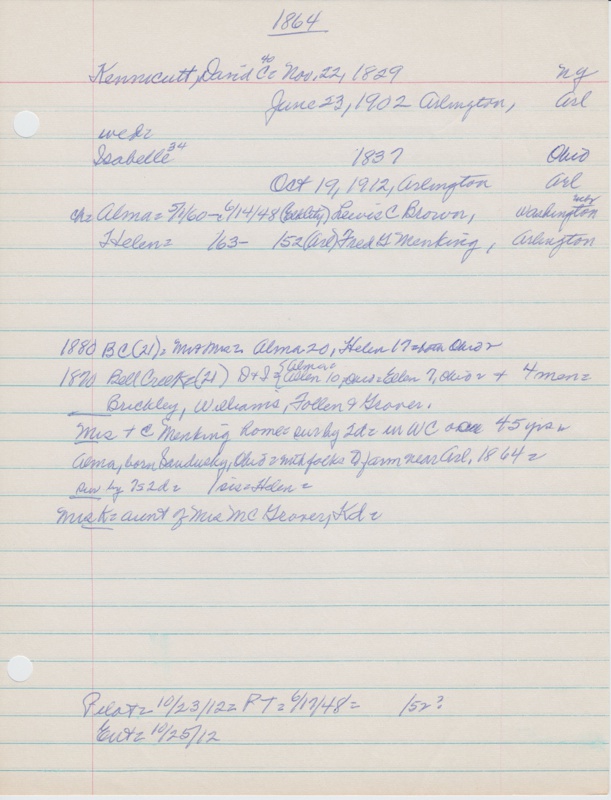 1864
Kennicutt, David C = Nov. 22, 1829 NY
40
June 23, 1902 Arlington, Arl
wed =
Isabelle 34 1837 Ohio
Oct 19, 1912, Arlington Arl
ch = Alma = 5/1/60 - 6/14/48 (Realty) Lewis C Brown, Washington
Helen = '63 - '52 (Arl) Fred G Menking, Arlington
1880 BC (21) = Mr + Mrs = Alma 20, Helen 17 = both Ohio =
1870 Bell Creek = (21) D + I = Allen 10, Ellen 7, Ohio = + 4 men =
Brickley, Williams, Follen + Grover.
Mrs + C Menking Rome = sur by 2d = in WC over 45 yrs =
Alma, born Sandusky, Ohio = with folks to farm near Arl, 1864 =
sur by 7s 2d = 1 sis = Helen =
Mrs K = aunt of Mrs MC Grover, Kd =
Pilot = 10/23/12 = PT = 6/17/48 = '52 ?
Ent = 10/25/12